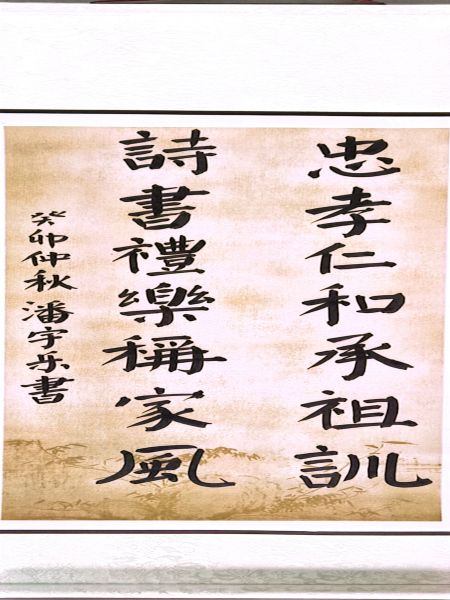 忠孝仁和承祖訓
詩書禮樂稱家風
癸卯仲秋潘宇乐書